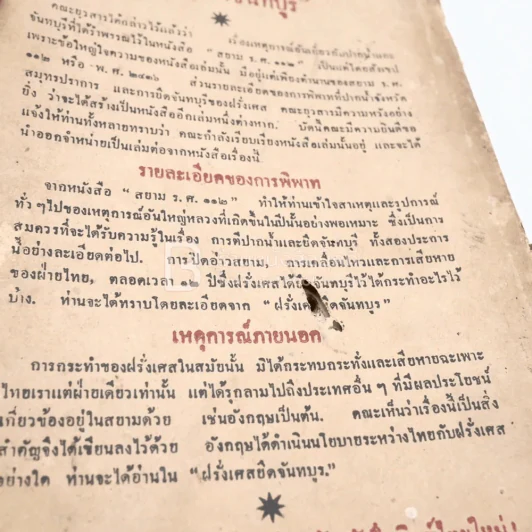 จันทบุร"
คณะยุวสารได้กล่าวไว้แล้วว่า เรื่องเหตุการณ์อันเกี่ยวกับปากน้ำและ
จันทบุรีที่ได้พรรณาไว้ในหนังสือ " สยาม ร.ศ. ๑๑๒" เป็นแต่โดยสังเขป.
เพราะข้อใหญ่ใจความของหนังสือเล่มนั้น มีอยู่แต่เพียงตำนานของสยาม ร.ศ.
๑๑๒ หรือ พ.ศ. ๒๔๓๖ ส่วนรายละเอียดของการพิพาทที่ปากน้ำจังหวัด
สมุทรปราการ และการยึดจันทบุรีของฝรั่งเศส คณะยุวสารมีความหวังอย่าง
ยิ่ง ว่าจะได้สร้างเป็นหนังสืออีกเล่มหนึ่งต่างหาก. บัดนี้คณะมีความยินดีขอ
แจ้งให้ท่านทั้งหลายทราบว่า คณะกำลังเรียบเรียงหนังสือเล่มนั้นอยู่ และจะได้
นำออกจำหน่ายเป็นเล่มต่อจากหนังสือเรื่องนี้.
รายละเอียดของการพิพาท
จากหนังสือ " สยาม ร.ศ. ๑๑๒" ทำให้ท่านเข้าใจสาเหตุและรูปการณ์
ทั่ว ๆ ไปของเหตุการณ์อันใหญ่หลวงที่เกิดขึ้นในปีนั้นอย่างพอเหมาะ ซึ่งเป็นการ
สมควรที่จะได้รับความรู้ในเรื่อง การตีปากน้ำและยึดจันทบุรี ทั้งสองประการ
นี้อย่างละเอียดต่อไป. การปิดอ่าวสยาม, การเคลื่อนไหวและการเสียหาย
ของฝ่ายไทย, ตลอดเวลา ๑๒ ปีซึ่งฝรั่งเศสได้ยึดจันทบุรีไว้ได้กระทำอะไรไว้
บ้าง. ท่านจะได้ทราบโดยละเอียดจาก " ฝรั่งเศสยึดจันทบูร"
เหตุการณ์ภายนอก
การกระทำของฝรั่งเศสในสมัยนั้น มิได้กระทบกระทั่งและเสียหายฉะเพาะ
ไทยเราแต่ฝ่ายเดียวเท่านั้น แต่ได้รุกลามไปถึงประเทศอื่น ๆ ที่มีผลประโยชน์
เกี่ยวข้องอยู่ในสยามด้วย เช่นอังกฤษเป็นต้น. คณะเห็นว่าเรื่องนี้เป็นสิ่ง
สำคัญจึงได้เขียนลงไว้ด้วย อังกฤษได้ดำเนินนโยบายระหว่างไทยกับฝรั่งเศส
อย่างใด ท่านจะได้อ่านใน " ฝรั่งเศสยึดจันทบูร."